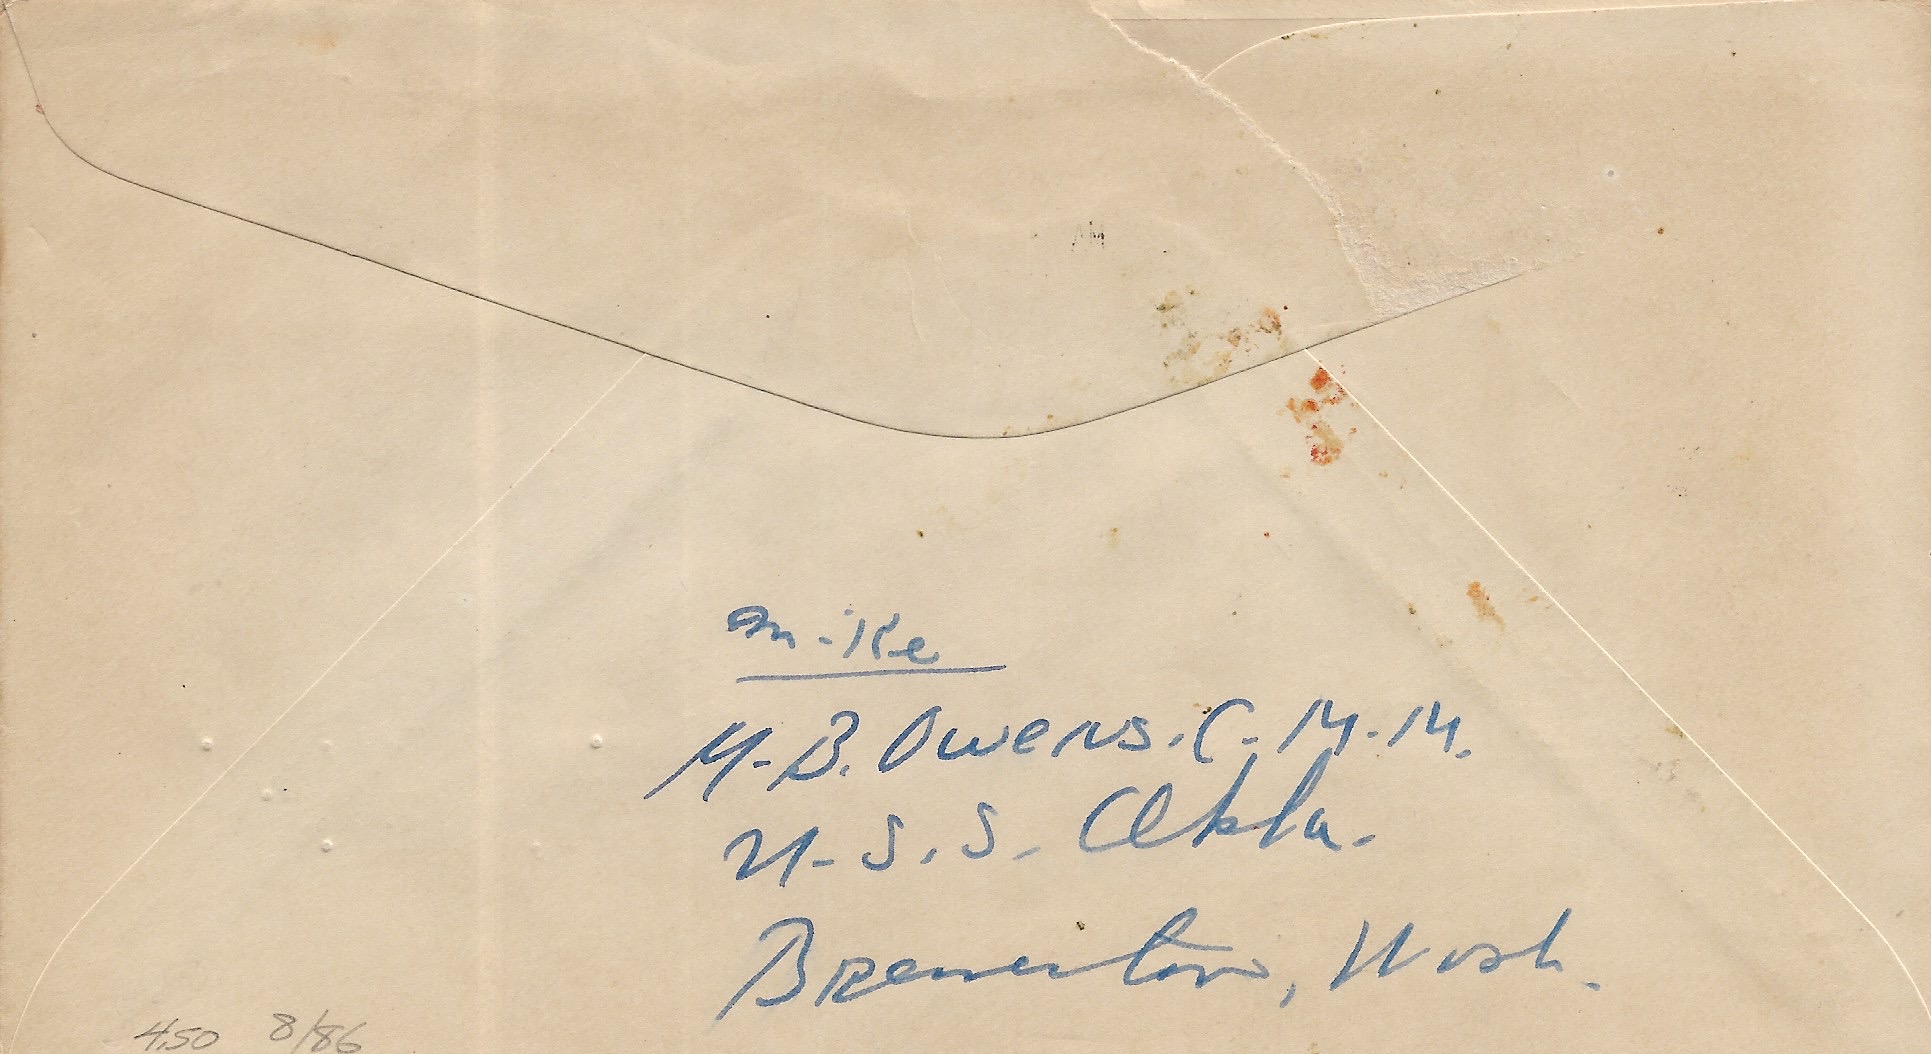 AM
Mike
M-B. Owens. C-M-M.
U-S.S. Okla.
Bremerton, Wash.
4.50 8/86